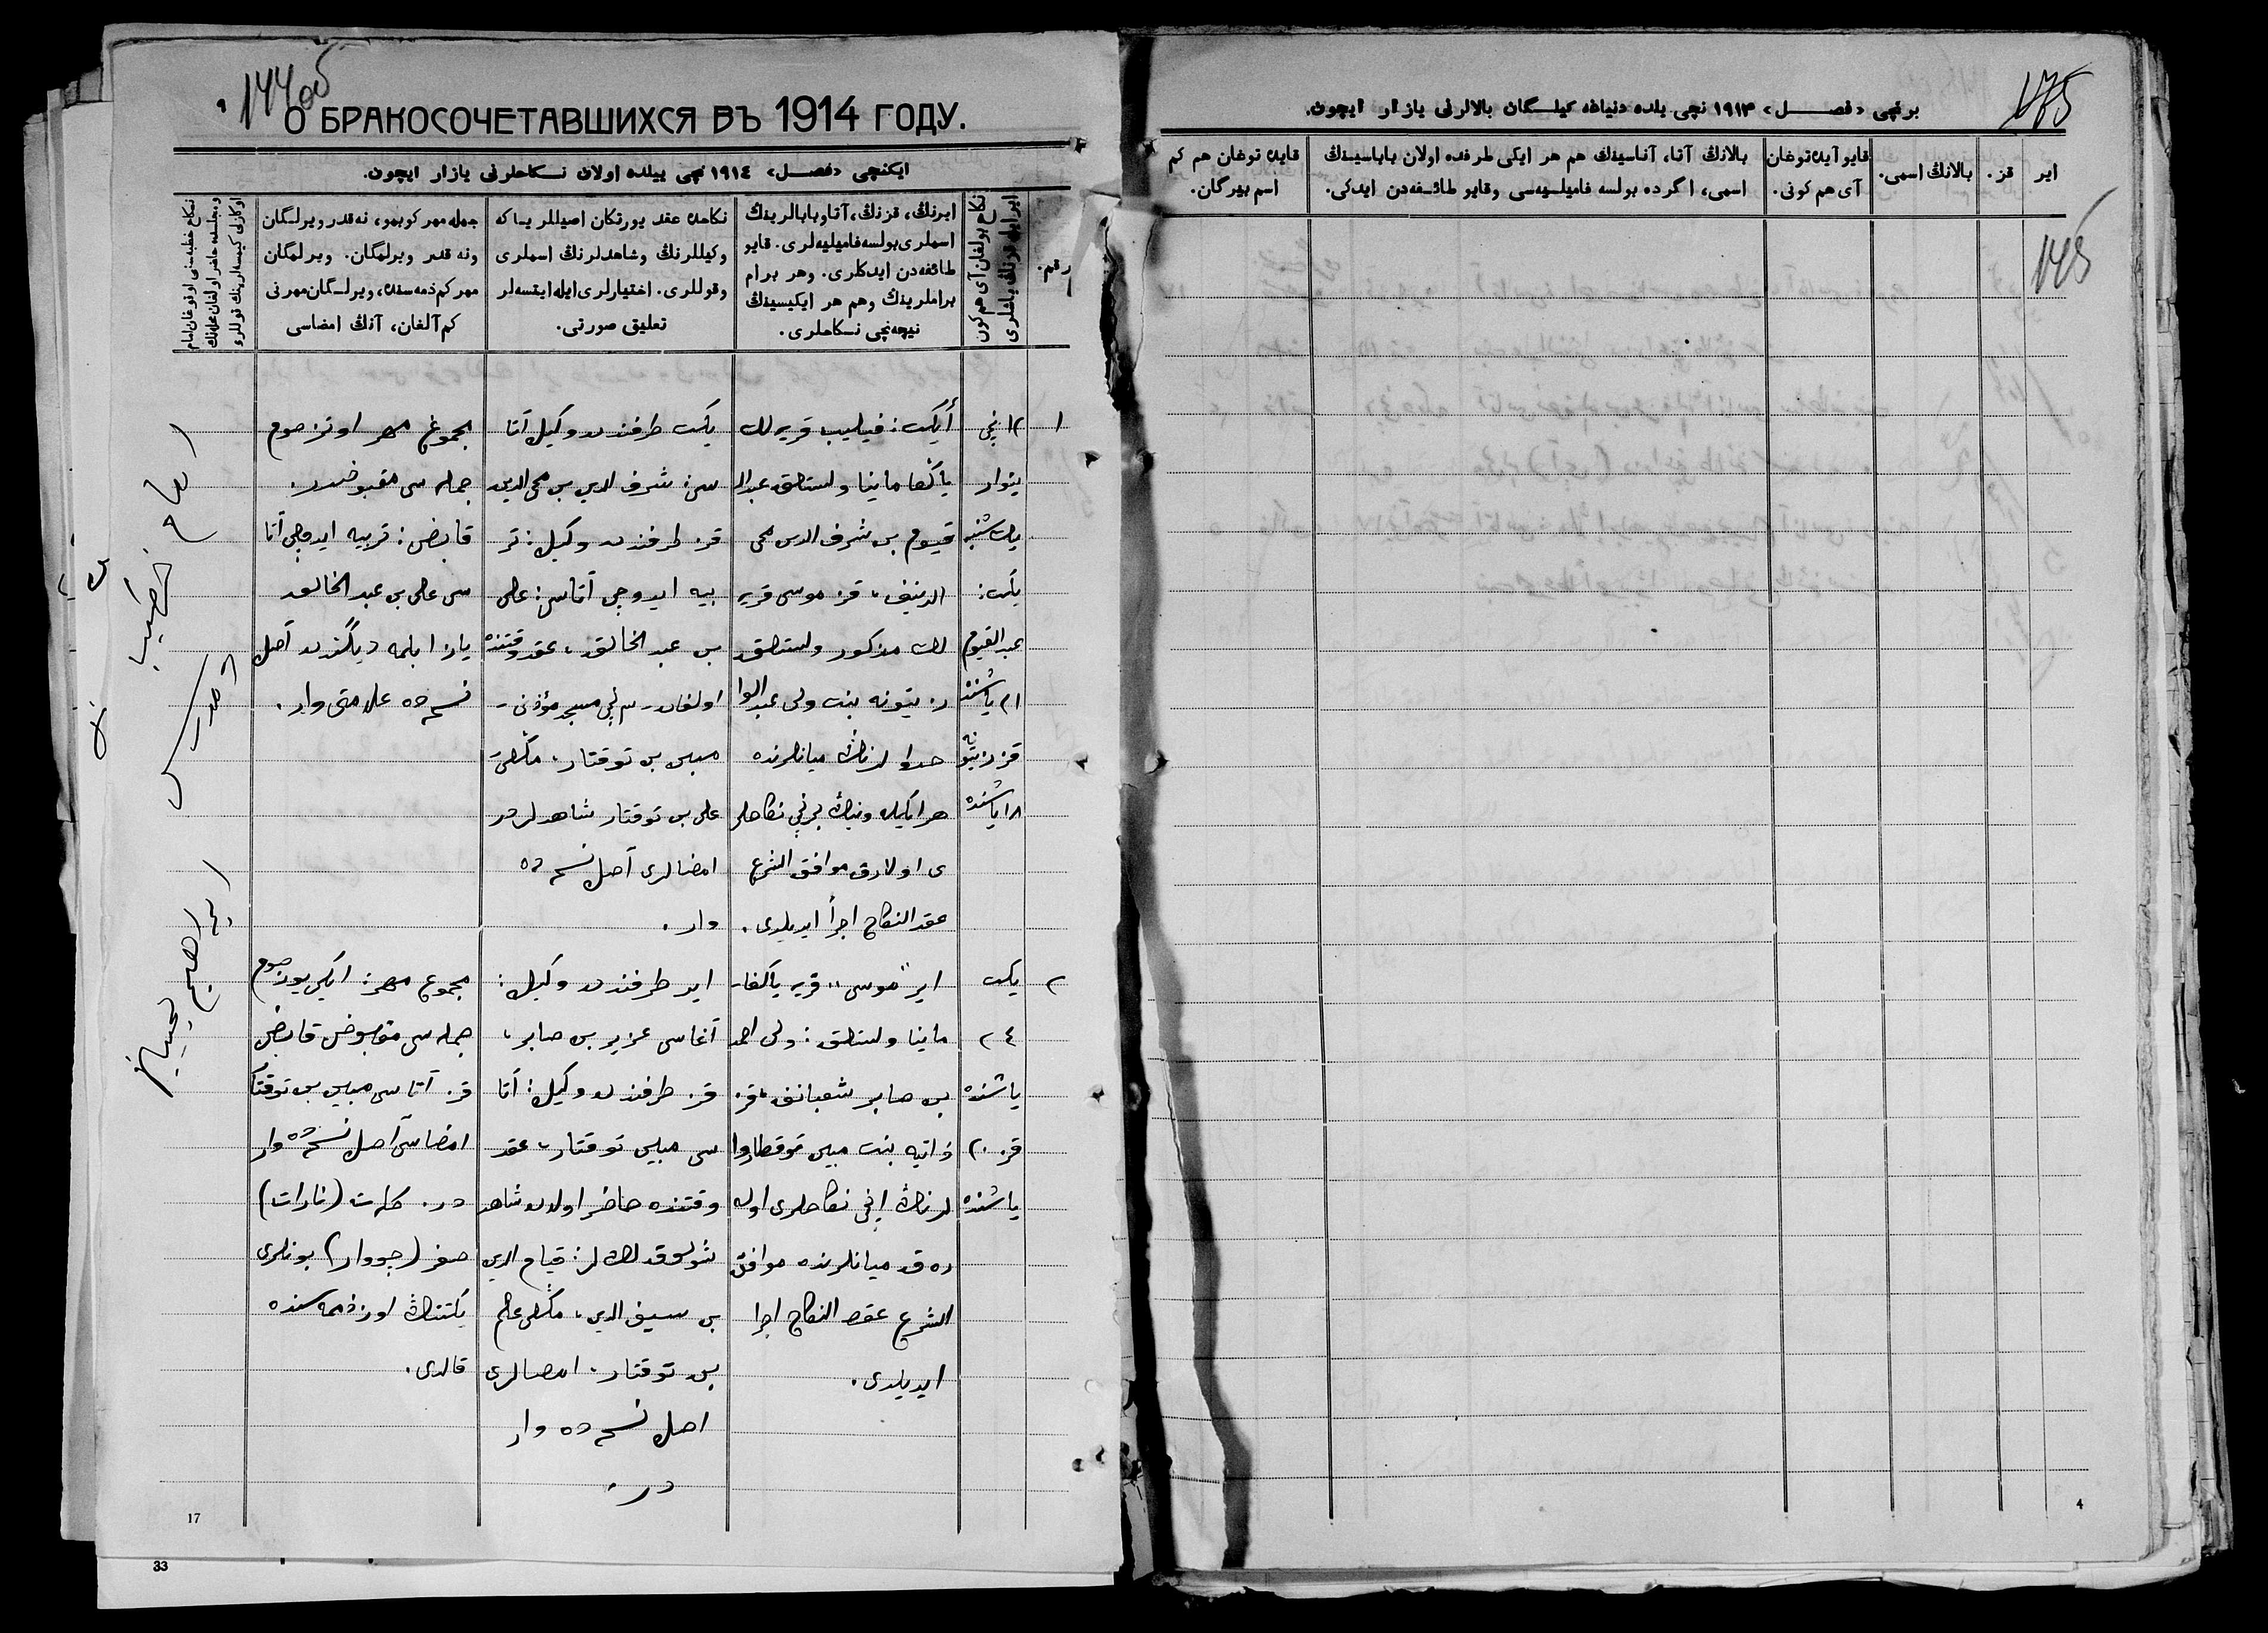 144 об
О БРАКОСОЧЕТАВШИХСЯ ВЪ 1914 ГОДУ.
ایکنچی «فصل» ١٩١٤ نچی ییلده اولان نکاحلرنی یازار ایچون.
رقم.
ایر ایله قزنڭ یاشلری
نکاح بولغان آی هم کون
ایرنڭ، قزنڭ، آتا و بابالرینڭ
اسملری بولسه فامیلیه‌لری. قایو
طائفه‌دن ایدکلری. وهر برام
براملرینڭ وهم هر ایکیسینڭ
نیچه‌نچی نکاحلری.
نکاحده عقد یورتکان اصیللر یساکه
وکیللرنڭ و شاهدلرنڭ اسملری
وقوللری. اختیارلری ایله ایتسه‌لر
تعلیق صورتی.
جمله مهر کوبمو، نه قدر ویرلگان
ونه قدر ویرلمگان. ویرلمگان
مهر کم ذمه‌سنده، ویرلگان مهرنی
کم آلغان، آنڭ امضاسی
نکاح خطبه‌سنی اوقوغان امام
و مجلسده حاضر اولغان
اوکازلی کیمسه‌لرینڭ قوللری
١
١٢ نچی
ینوار
یک شنبه
یکت:
عبدالقیوم
٢١ یاشنده
قز زیتونه
١٨ یاشنده
یکت: فیلیب قریه لک
یاکفا ماینا ولستلق عبدال
قیوم بن شرف الدین محی
الدینف، قز موسی قریه
لک مذکور ولستلق
زیتونه بنت ولی عبدالوا
حدوا لرنڭ میانلرنده
هر ایکیلرینڭ برنچی نکاحلر
ی اولارق موافق الشرع
عقد النکاح اجرأ ایدیلدی.
یکت طرفندن وکیل آتا
سی: شرف الدین بن محی الدین
قز طرفندن وکیل: تر
بیه ایدوچی آتاسی: علی
بن عبد الخالق، عقد وقتنده
اولغان ٣ نچی مسجد مؤذنی -
مبین بن توقتار،
علی بن توقتار شاهدلردر
امضالری آصل نسخه ده
وار.
مجموع مهر اوتوز صوم
جمله سی مقبوضدر.
قابض: تربیه ایدوچی آتا
سی علی بن عبد الخالق
یازا بلمه دیگندن آصل
نسخه ده علامتی وار.
٢
یکت
٢٤
یاشنده
قز ٢٠
یاشنده
ایر "موسی" قریه یاکفا-
ماینا ولستلق: ولی احمد
بن صابر شعبانف، قز
ذاتیه بنت مبین توقطاروا
لرنڭ برنچی نکاحلری اولا
رق میانلرنده موافق
الشرع عقد النکاح اجرا
ایدیلدی.
ایر طرفندن وکیل:
آغاسی عزیر بن صابر،
قز طرفندن وکیل: آتا
سی مبین توقتار، عقد
وقتنده حاضر اولان شاهد
لر: قیام الدین
بن سیف الدین،
بن توقتار. امضالری
اصل نسخه ده وار
در.
مجموع مهر: ایکی یوز صوم
جمله سی مقبوض قابض
قز آتاسی مبین بن توقتار
امضاسی آصل نسخه ده وار
در.
یکتنڭ اوز ذمه سنده
قالدی.
امام خطیب
و مدرس
ابراهیم
17
33
175
145
برنچی «فصل» ١٩١٣ نچی یلده دنیاغه کیلگان بالالرنی یازار ایچون.
ایر
قز.
بالانڭ اسمی.
قایو آیده توغان
آی هم کونی.
بالانڭ آتا، آناسینڭ هم هر ایکی طرفده اولان باباسینڭ
اسمی، اگرده بولسه فامیلیه‌سی وقایو طائفه‌دن ایدکی.
قایده توغان هم کم
اسم بیرگان.
4